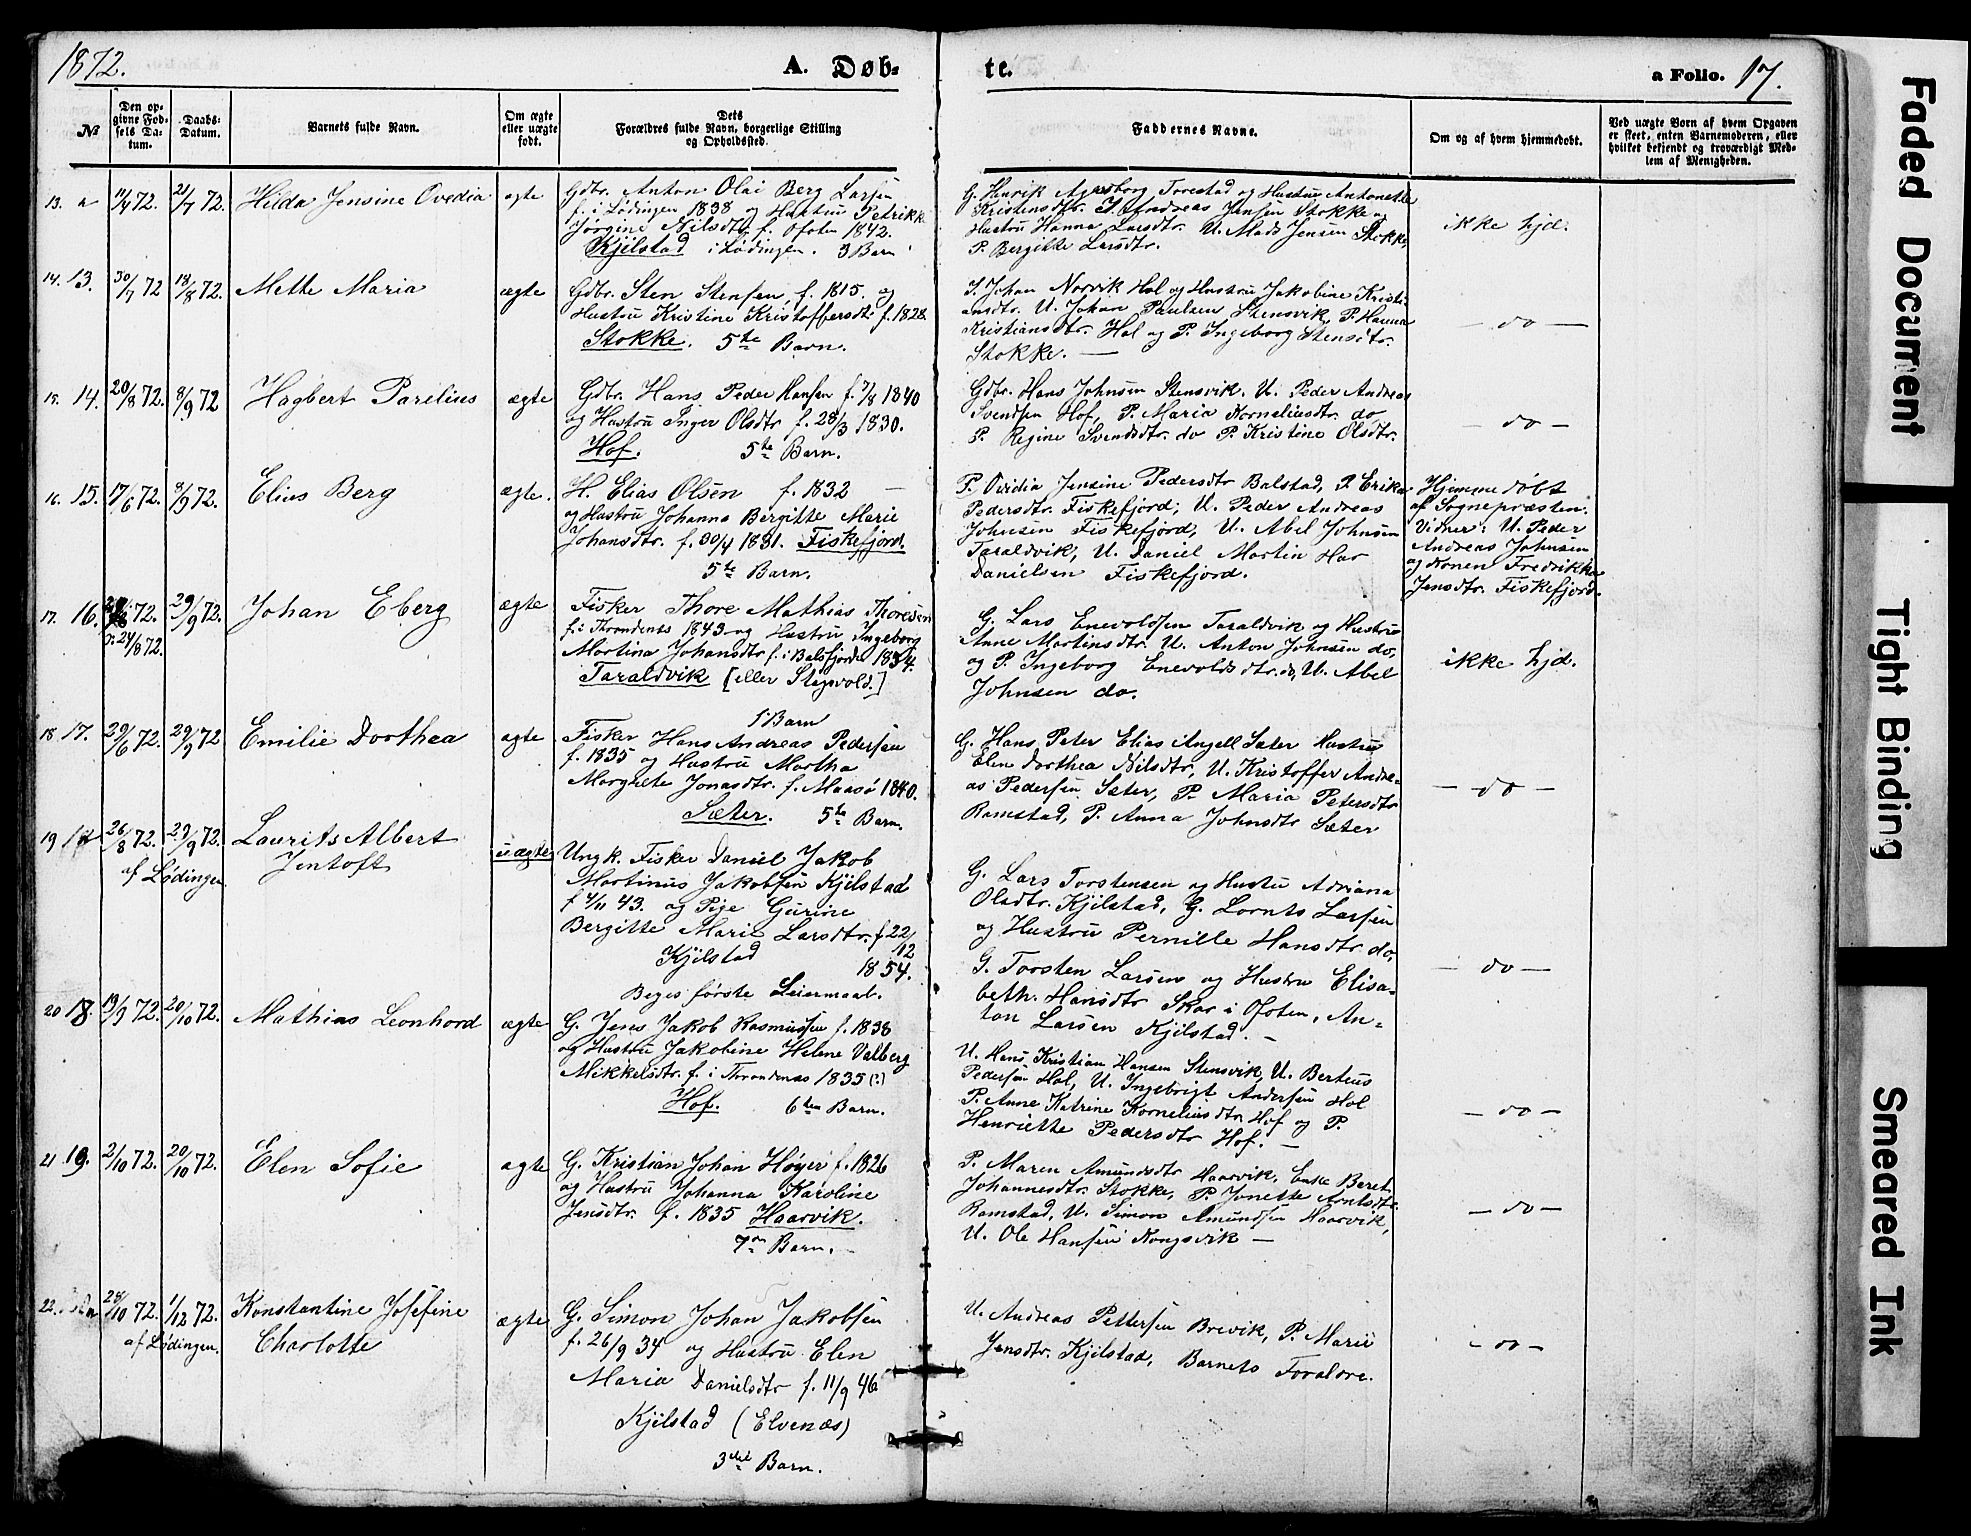 1872.
A. Døb-
te.
a Folio. 17.
№
Den op-
givne Fød-
sels Da-
tum.
Daabs-
Datum.
Barnets fulde Navn.
Om ægte
eller uægte
født.
Dets
Forældres fulde Navn, borgerlige Stilling
og Opholdssted.
Faddernes Navne.
Om og af hvem hjemmedøbt.
Ved uægte Børn af hvem Opgaven
er skeet, enten Barnemoderen, eller
hvilket bekjendt og troværdigt Med-
lem af Menigheden.
13. a
11/4 72.
21/7 72.
Hilda Jensine Ovedia
ægte
Gdbr. Anton Olai Berg Larsen
f. i Lødingen 1838 og Hustru Petrikke
Jørgine Nilsdtr. f. Ofoten 1842.
Kjilstad i Lødingen. 3 Barn
G. Henrik Torestad og Hustru Antonette
Kristensdtr. Andreas Jensen Stokke og
Hustru Hanna Larsdtr. U. Mads Jensen Stokke,
P. Bergitte Larsdtr.
ikke hjd.
14. 13.
30/7 72
18/8 72.
Mette Maria
ægte
Gdbr. Sten Stensen, f. 1815. og
Hustru Kristine Kristoffersdt. f. 1828.
Stokke. 5te Barn.
Johan Norvik Hol og Hustru Jakobine Kristi-
ansdtr. U. Johan Paulsen Stensvik, P. Hanna
Kristiansdtr. Hol og P. Ingeborg Stensdtr.
Stokke. —
— do —
15. 14.
20/8 72.
8/9 72
Hagbert Parelius
ægte
Gdbr. Hans Peder Hansen f. 7/8 1840
og Hustru Inger Olsdtr f. 28/3 1830.
Hof. 5te Barn.
Gdbr. Hans Johnsen Stensvik. U. Peder Andreas
Svendsen Hof, P. Maria Korneliusdtr. do
P. Regine Svendsdtr. do P. Kristine Olsdtr.
— do —
16. 15.
17/6 72.
8/9 72.
Elius Berg
ægte.
H. Elias Olsen f. 1832 —
og Hustru Johanna Bergitte Marie
Johansdtr. f. 30/4 1831. Fiskefjord.
5te Barn.
P. Ovidia Jensine Pedersdtr Balstad, P. Erika
Pedersdtr. Fiskefjord; U. Peder Andreas
Johnsen Fiskefjord, U. Abel Johnsen
Taraldvik, U. Daniel Martin Har
Danielsen Fiskefjord.
Hjemmedøbt
af Sognepræsten.
Vidner: U. Peder
Andreas Johnsen
og Konen Fredrikke
Jensdtr. Fiskefjord.
17. 16.
72.
24/8 72.
29/9 72.
Johan Eberg
ægte
Fisker Thore Mathias Thoresen
f. i Throndenæs 1843 og Hustru Ingeborg
Martina Johansdtr f. i Balsfjorden 1854.
Taraldvik [eller Stegvold.]
1ste Barn
G. Lars Enevoldsen Taraldvik og Hustru
Anne Martinsdtr. U. Anton Johnsen do,
og P. Ingeborg Enevoldsdtr. do, U. Abel
Johnsen do.
ikke hjd.
18 17.
29/6 72.
29/9 72
Emilie Dorthea
ægte
Fisker Hans Andreas Pedersen
f. 1835 og Hustru Martha
Margrete Jonasdtr. f. Maasø 1840.
Sæter. 5te Barn.
G. Hans Peter Elias Angell Sæter Hustru
Elen Dorthea Nilsdtr, U. Kristoffer Andre-
as Pedersen Sæter, P. Maria Petersdtr
Ramstad, P. Anna Johnsdtr Sæter
— do —
19
26/8 72.
29/9 72.
af Lødingen
Laurits Albert
Jentoft
uægte
Ungk. Fisker Daniel Jakob
Martinus Jakobsen Kjilstad
f. 4/11 43. og Pige Gurine
Bergitte Marie Larsdtr. f 22/12
Kjilstad 1854.
Beges første Leiermaal.
G. Lars Torstensen og Hustru Adriana
Olsdtr. Kjilstad, G. Lornts Larsen
og Hustru Pernille Hansdtr do,
G. Torsten Larsen og Hustru Elisa-
beth Hansdtr Skar i Ofoten, An-
ton Larsen Kjilstad. —
— do —
20 18.
19/9 72.
20/10 72.
Mathias Leonhard
ægte
G. Jens Jakob Rasmussen f. 1838
og Hustru Jakobine Helene Valberg
Mikkelsdtr. f. i Throndenæs 1835 (?)
Hof. 6te Barn.
U. Hans Kristian Hansen Stensvik, U. Berteus
Pedersen Hol, U. Ingebrigt Andersen Hol
P. Anne Katrine Korneliusdtr. Hof og P.
Henriette Pedersdtr Hof. —
— do —
21 19.
2/10 72.
20/10 72.
Elen Sofie
ægte
G. Kristian Johan Høyer f. 1826
og Hustru Johanna Karoline
Jensdtr. f. 1835 Haarvik.
7de Barn. —
P. Maren Amundsdtr Haarvik, Enke Beret
Johannesdtr. Stokke, P. Jonette Arntsdtr.
Ramstad, U. Simon Amundsen Haarvik,
U. Ole Hansen Kongsvik —
— do —
22.
28/10 72.
1/12 72.
af Lødingen.
Konstantine Josefine
Charlotte
ægte
G. Simon Johan Jakobsen
f. 26/9 34 og Hustru Elen
Maria Danielsdtr f. 11/9 46
Kjilstad (Elvenæs)
3die Barn.
U. Andreas Pettersen Brevik, P. Marie
Jensdtr. Kjilstad, Barnets Forældre.
- do -
Faded Document
Tight Binding
Smeared Ink